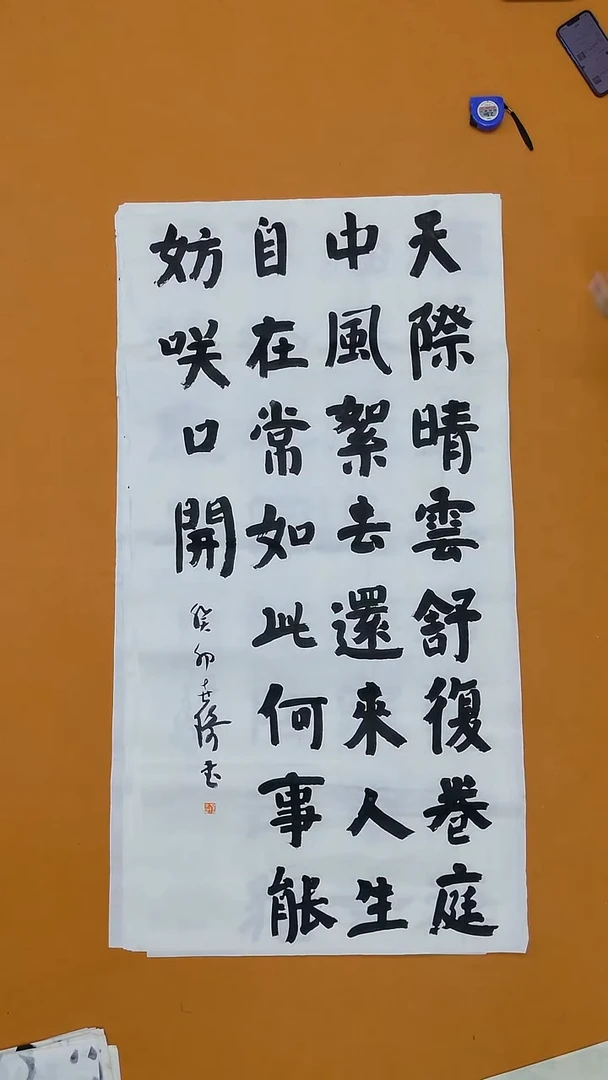 天際晴雲舒復卷庭
中風絮去還來人生
自在常如此何事能
妨咲口開
癸卯
書